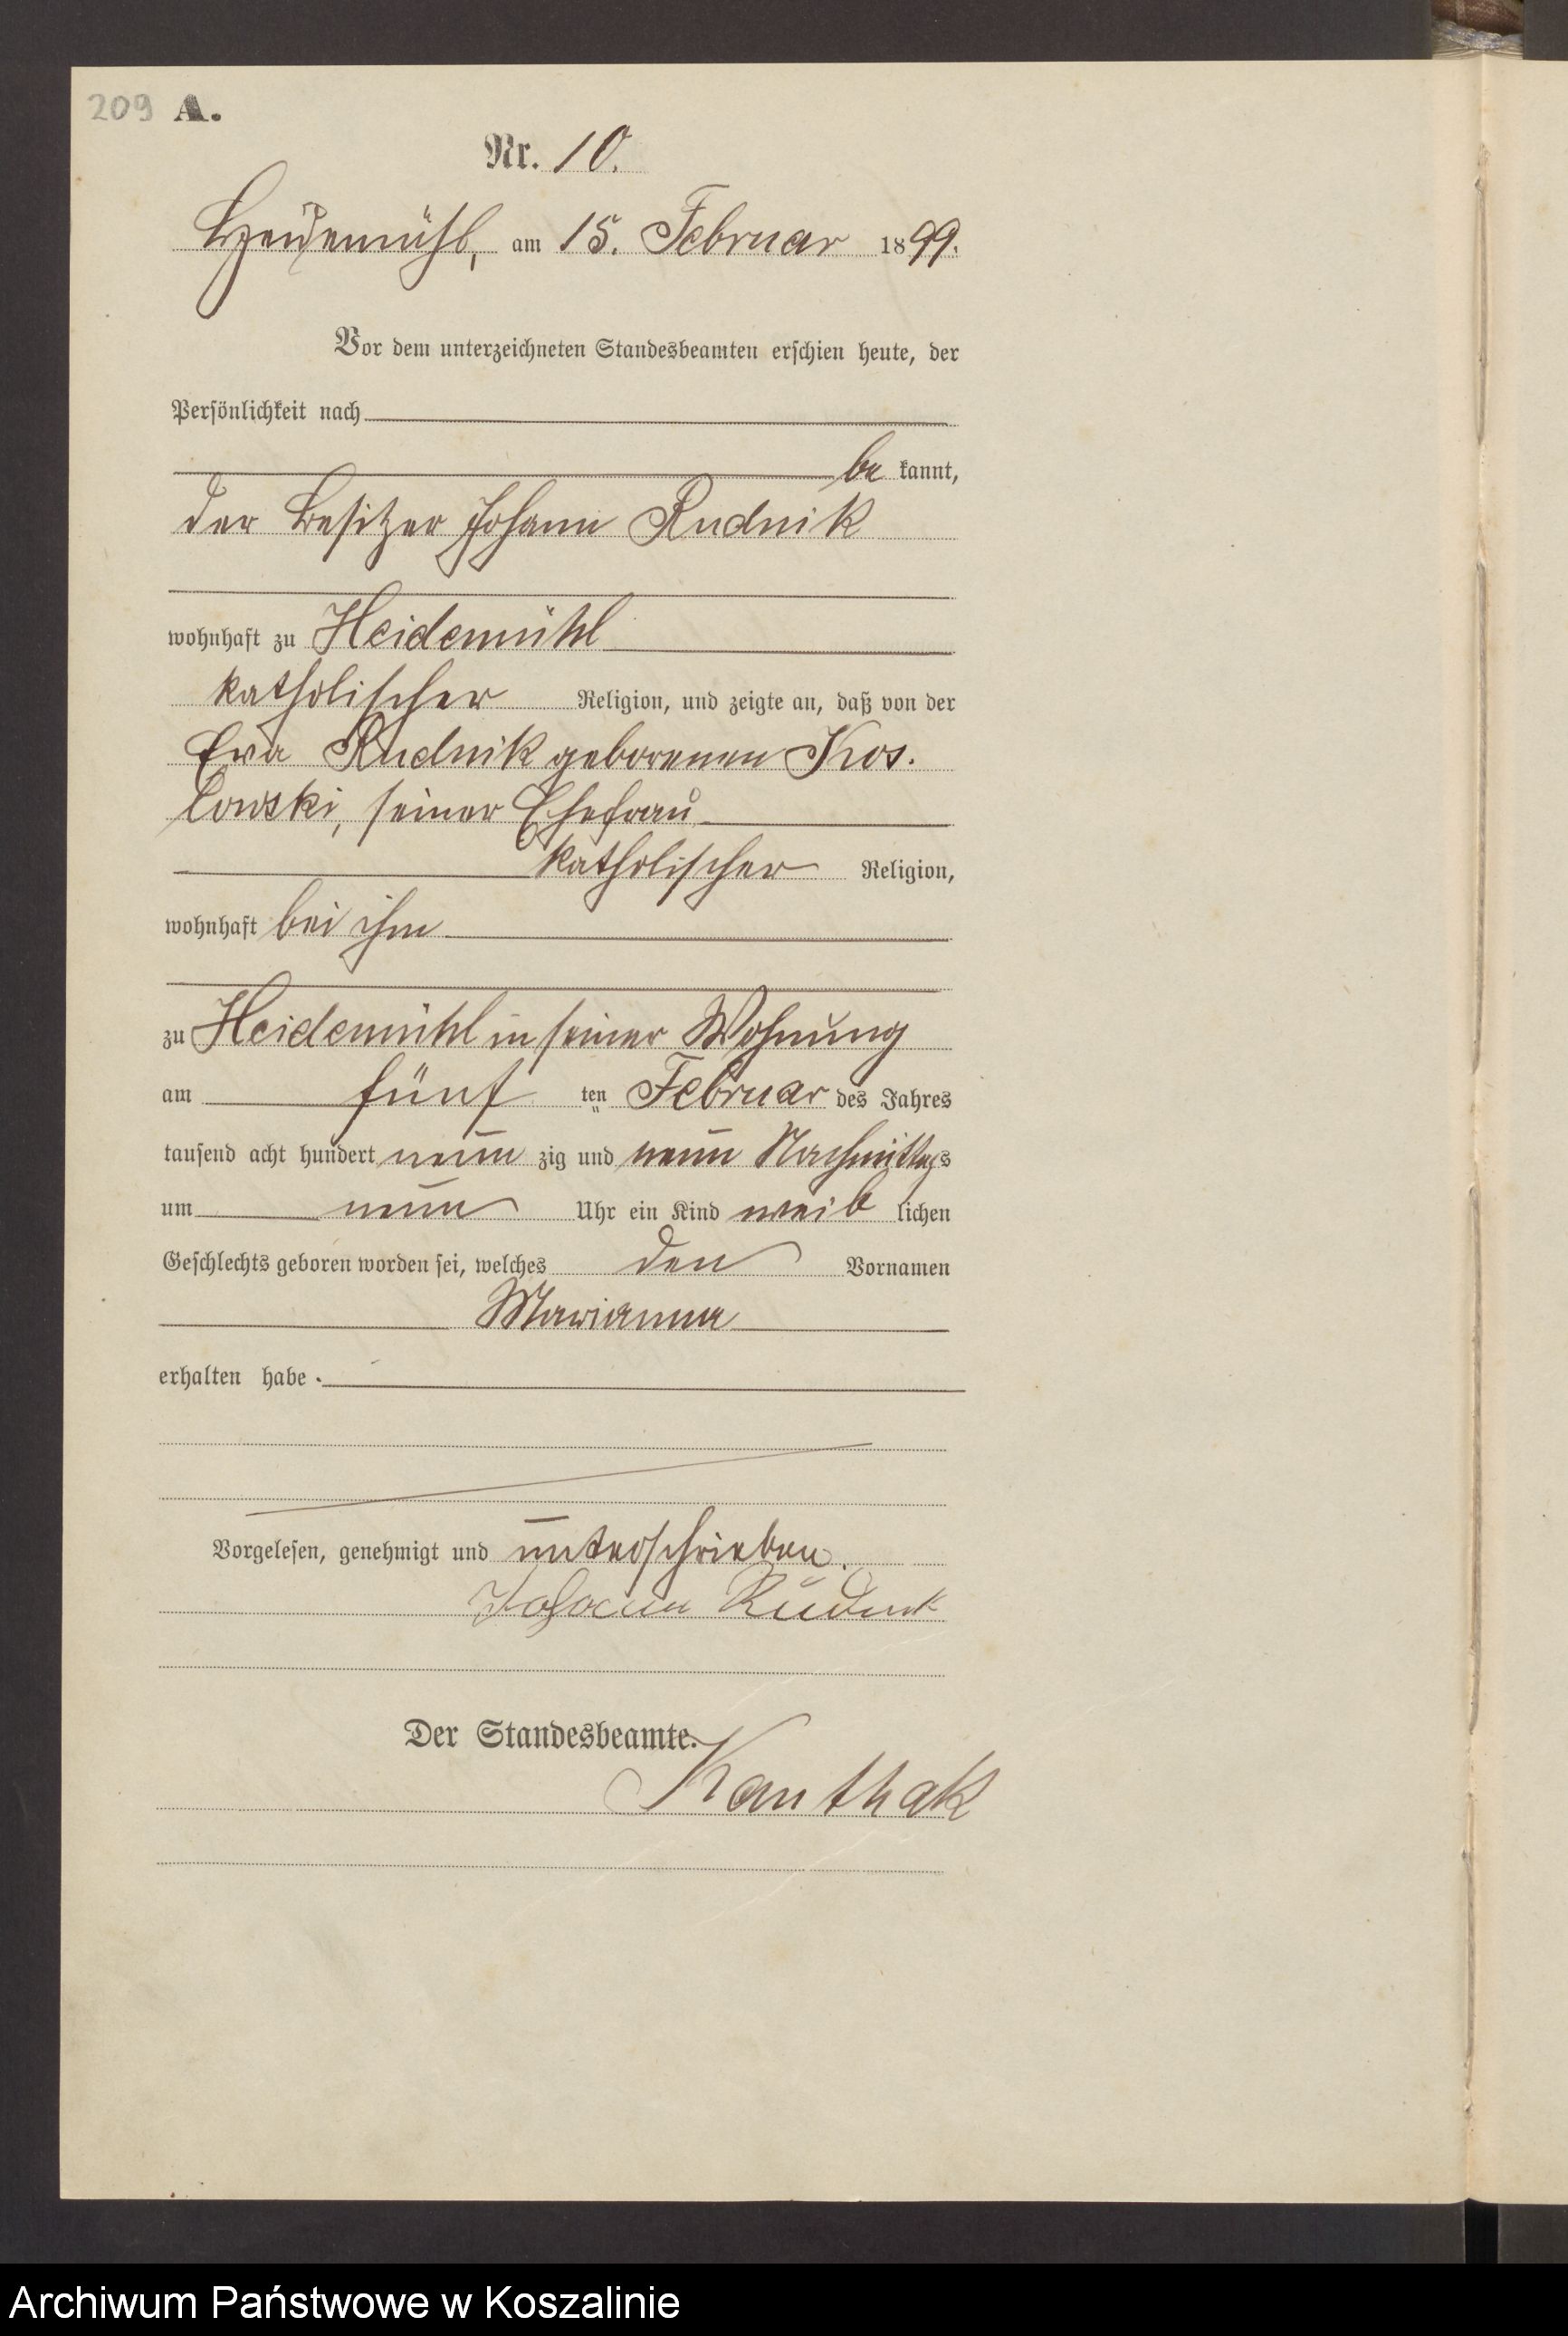 209 A.
Nr. 10.
Heidemühl, am 15. Februar 1899.
Vor dem unterzeichneten Standesbeamten erschien heute, der
Persönlichkeit nach
be kannt,
der Besitzer Johann Rudnik
wohnhaft zu Heidemühl
katholischer Religion, und zeigte an, daß von der
Eva Rudnik geborenen Kos.
lowski, seiner Ehefrau
katholischer Religion,
wohnhaft bei ihm
zu Heidemühl in seiner Wohnung
am fünf ten Februar des Jahres
tausend acht hundert neun zig und neun Nachmittags
um neun Uhr ein Kind weib lichen
Geschlechts geboren worden sei, welches den Vornamen
Marianna
erhalten habe.
Vorgelesen, genehmigt und unterschrieben.
Johann Rudnik
Der Standesbeamte.
Kanthak
Archiwum Państwowe w Koszalinie